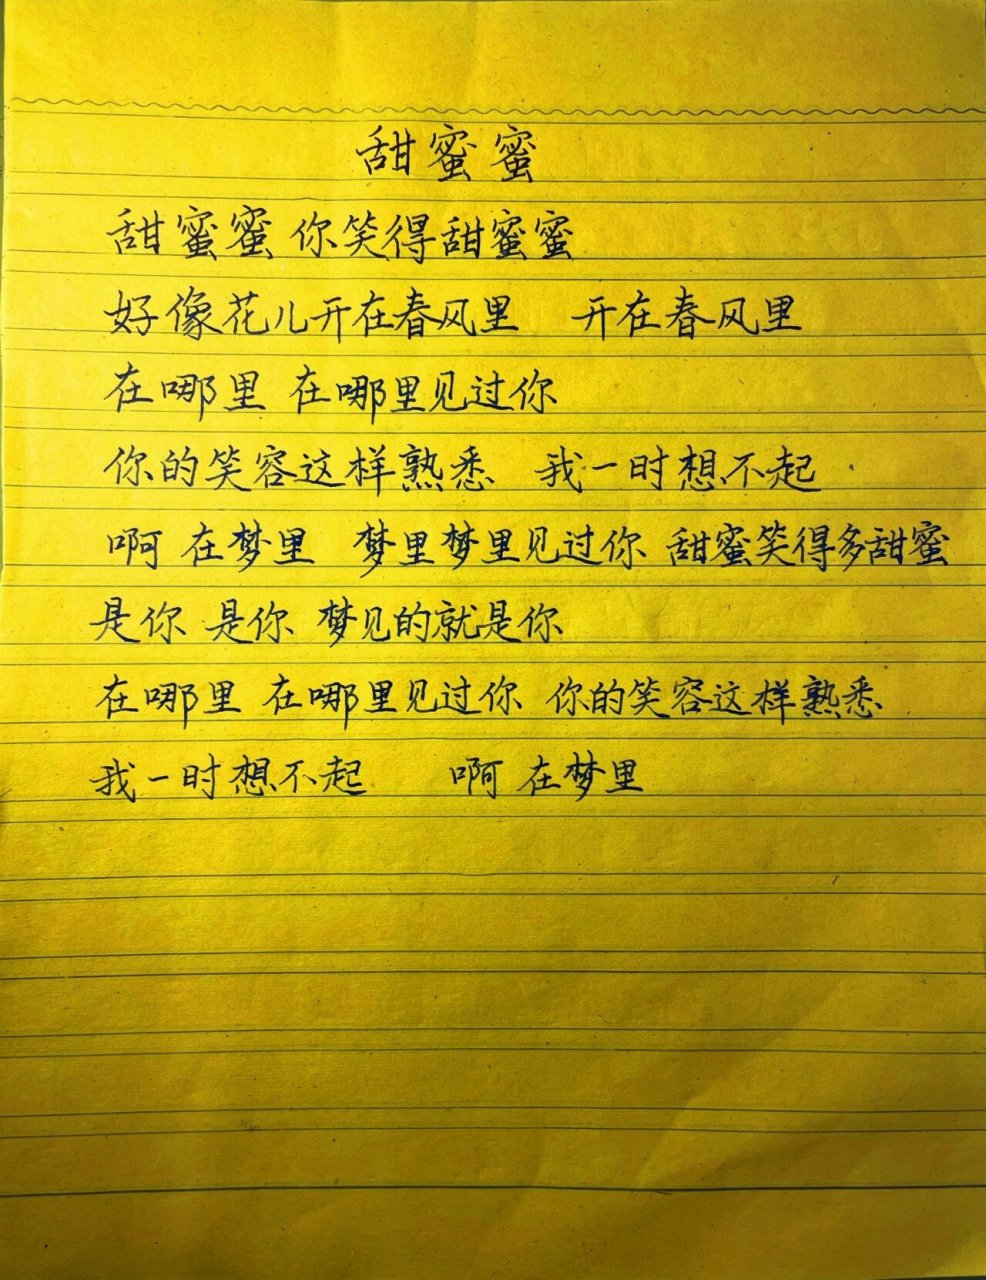 甜蜜蜜
甜蜜蜜 你笑得甜蜜蜜
好像花儿开在春风里 开在春风里
在哪里 在哪里见过你
你的笑容这样熟悉 我一时想不起
啊 在梦里 梦里梦里见过你 甜蜜笑得多甜蜜
是你 是你 梦见的就是你
在哪里 在哪里见过你 你的笑容这样熟悉
我一时想不起 啊 在梦里